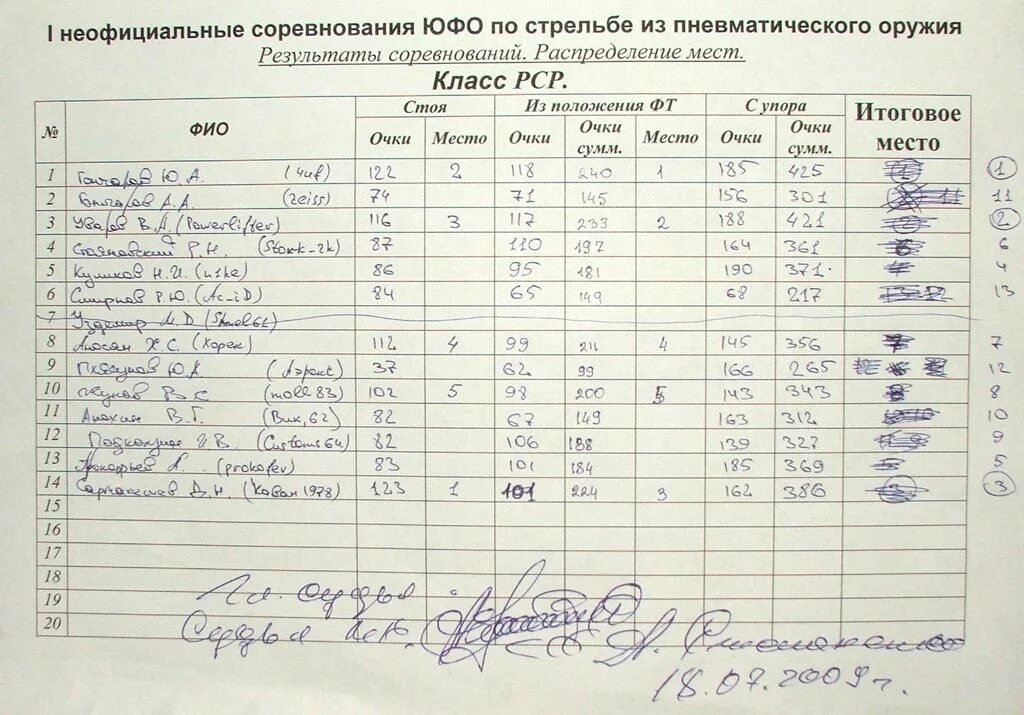 I неофициальные соревнования ЮФО по стрельбе из пневматического оружия
Результаты соревнований. Распределение мест.
Класс РСР.
№ ФИО Стоя Из положения ФТ С упора Итоговое место
Очки Место Очки Очки сумм. Место Очки Очки сумм.
1 Ю. А. 122 2 118 240 1 185 425 1
2 А.А. (zeiss) 74 71 145 156 301 11 11
3 Уваров В.А. (Powerlifter) 116 3 117 233 2 188 421 2
4 Р.Н. (Stork-2k) 87 110 197 164 361 6
5 Куликов Н.И. (nike) 86 95 181 190 371 4
6 Смирнов Р.Ю. (Ac-iD) 84 65 149 68 217 13
7
8 Х С. (Хорек) 112 4 99 211 4 145 356 7
9 Ю.К 37 62 99 166 265 12
10 Жкунов В.С (moll83) 102 5 98 200 5 143 343 8
11 Анохин В.Г. (Вик,62) 82 67 149 163 312 10
12 В. (Customs64) 82 106 188 139 327 9
13 Прокофьев А. (prokofev) 83 101 184 185 369 5
14 Д.Н. (Кован1978) 123 1 101 224 3 162 386 3
15
16
17
18
19
20
Гл. судья
Судья
18.07.2009г.